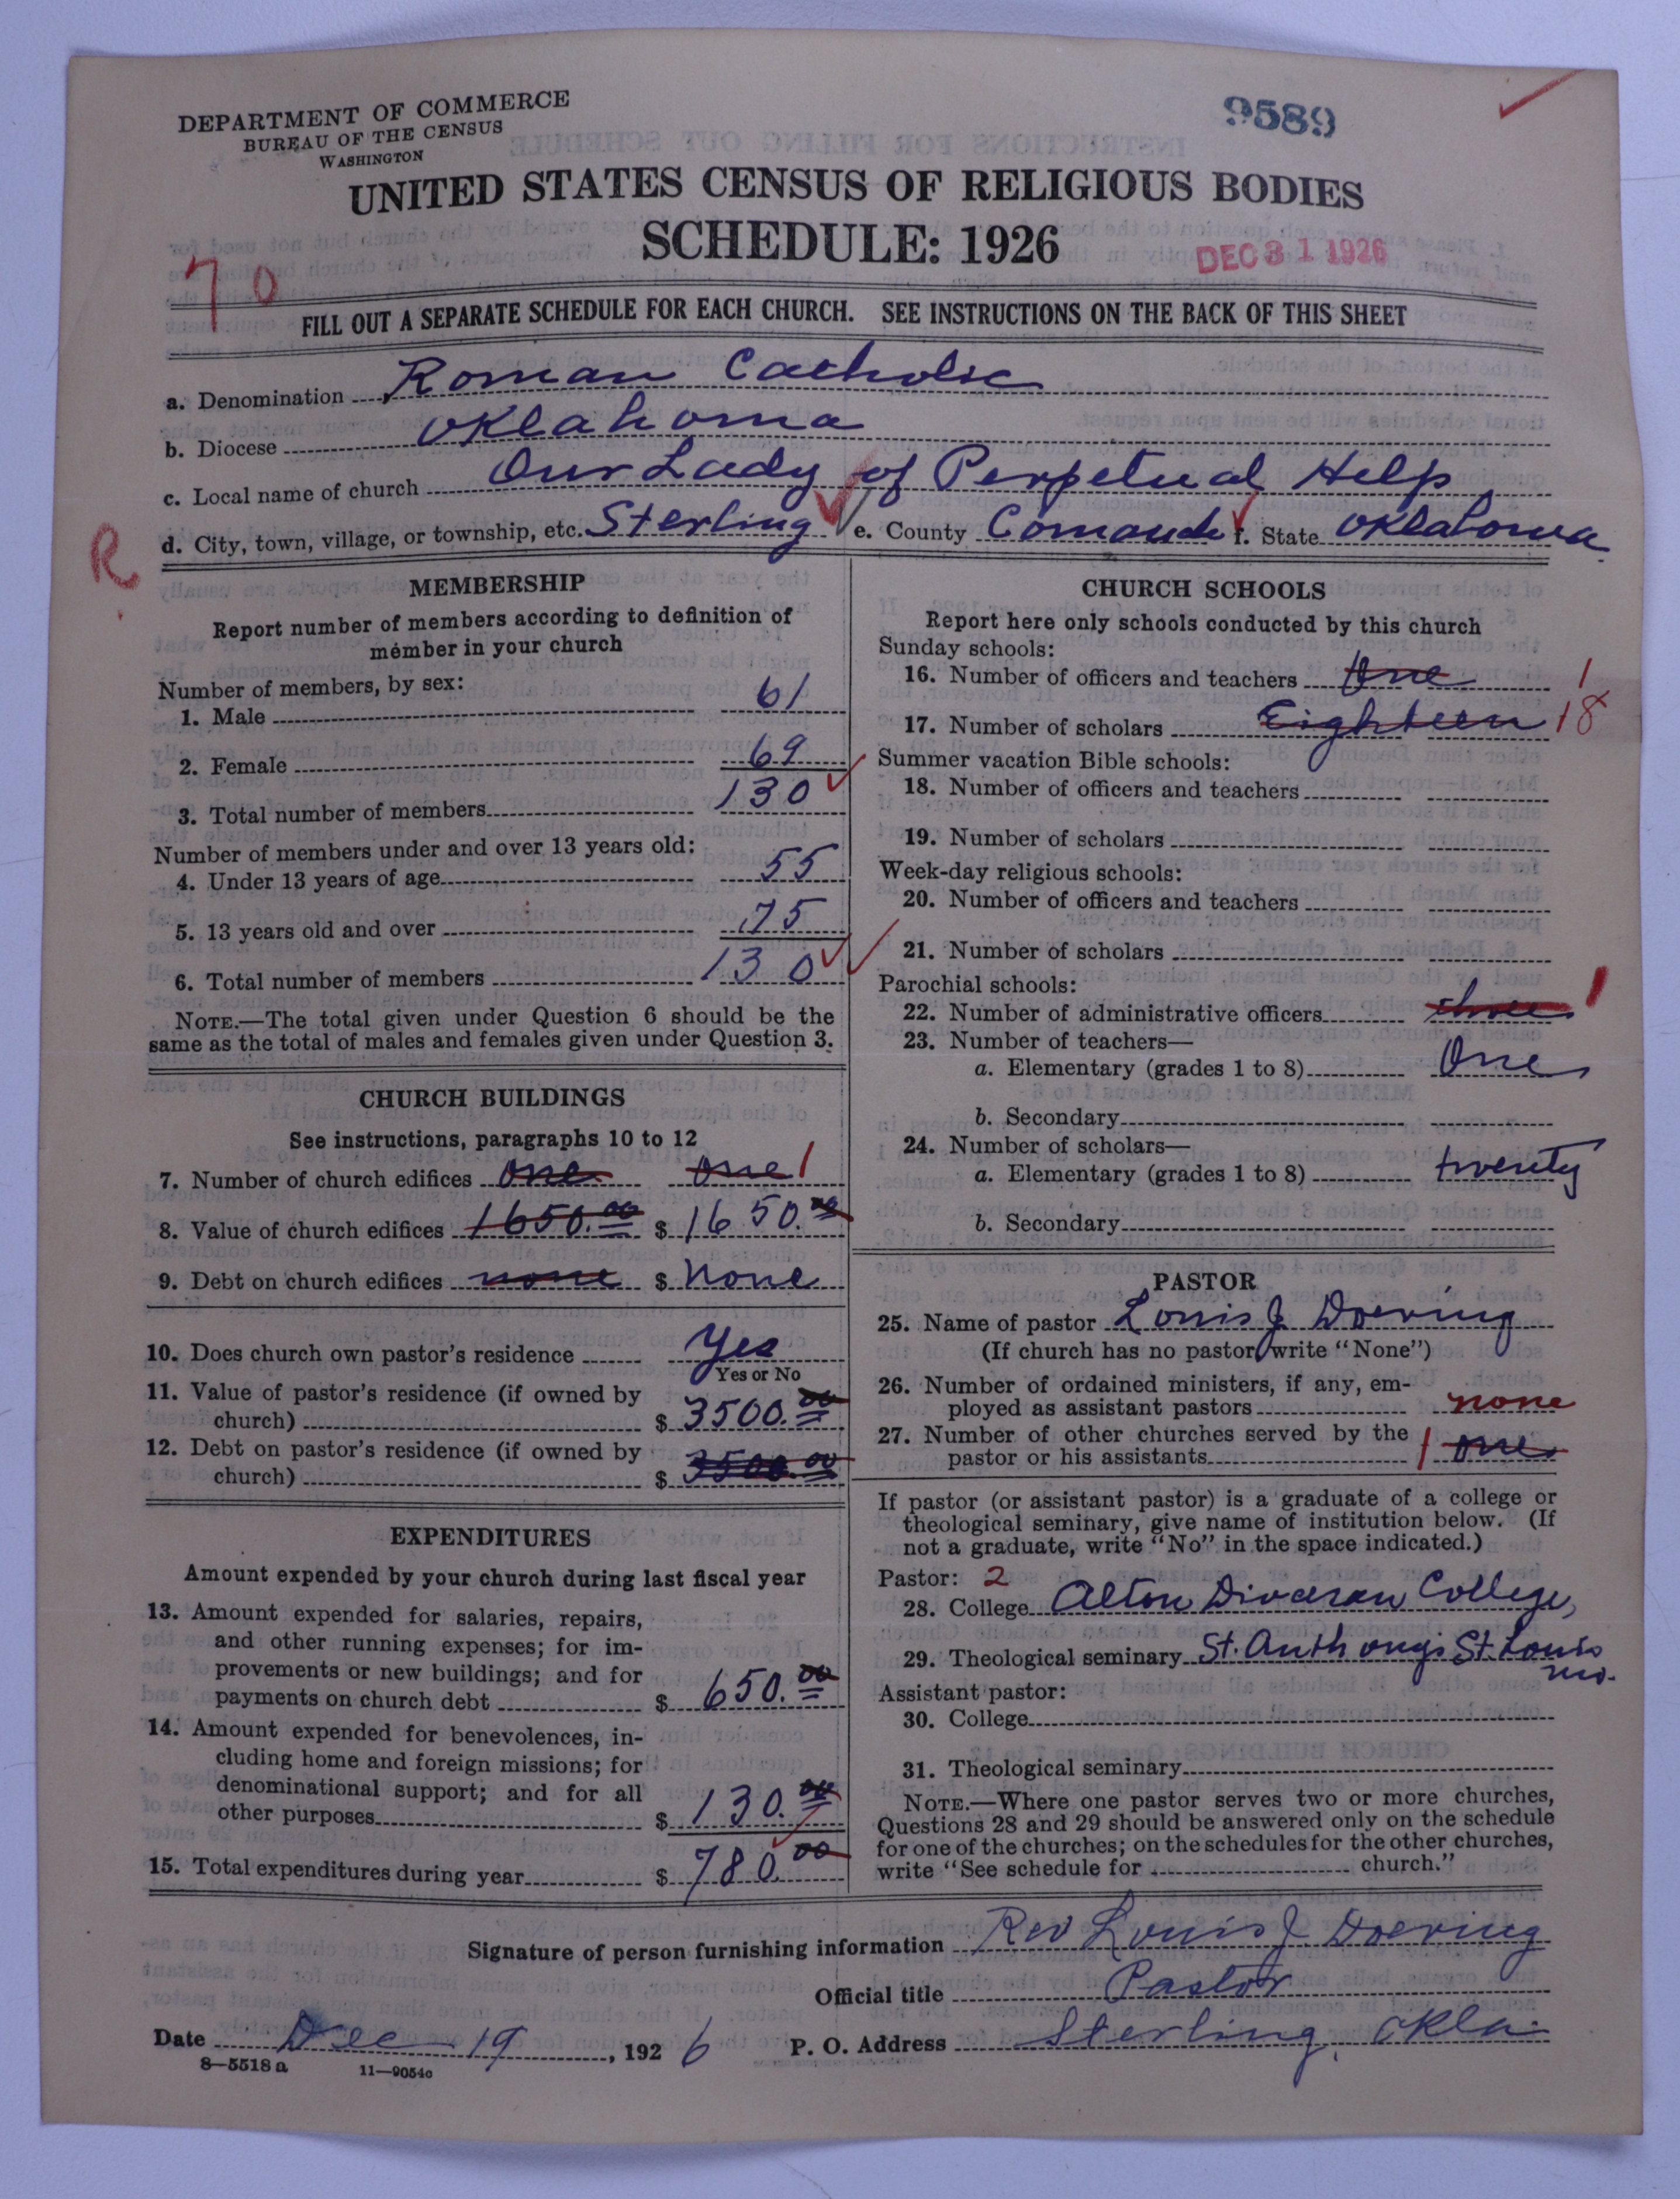 DEPARTMENT OF COMMERCE
BUREAU OF THE CENSUS
WASHINGTON
9589
UNITED STATES CENSUS OF RELIGIOUS BODIES
SCHEDULE: 1926
DEC 31 1926
70
FILL OUT A SEPARATE SCHEDULE FOR EACH CHURCH. SEE INSTRUCTIONS ON THE BACK OF THIS SHEET
a. Denomination Roman Catholic
b. Diocese Oklahoma
c. Local name of church Our Lady of Perpetual Help
R
d. City, town, village, or township, etc. Sterling e. County Comanche f. State Oklahoma
MEMBERSHIP
Report number of members according to definition of
member in your church
Number of members, by sex:
1. Male 61
2. Female 69
3. Total number of members 130
Number of members under and over 13 years old:
4. Under 13 years of age 55
5. 13 years old and over 75
6. Total number of members 130
NOTE.—The total given under Question 6 should be the
same as the total of males and females given under Question 3.
CHURCH BUILDINGS
See instructions, paragraphs 10 to 12
7. Number of church edifices one one 1
8. Value of church edifices 1650.00 $ 1650.00
9. Debt on church edifices none $ None
10. Does church own pastor's residence Yes
Yes or No
11. Value of pastor's residence (if owned by
church) $ 3500.00
12. Debt on pastor's residence (if owned by
church) $ 3500.00
EXPENDITURES
Amount expended by your church during last fiscal year
13. Amount expended for salaries, repairs,
and other running expenses; for im-
provements or new buildings; and for
payments on church debt $ 650.00
14. Amount expended for benevolences, in-
cluding home and foreign missions; for
denominational support; and for all
other purposes $ 130.00
15. Total expenditures during year $ 780.00
CHURCH SCHOOLS
Report here only schools conducted by this church
Sunday schools:
16. Number of officers and teachers One 1
17. Number of scholars Eighteen 18
Summer vacation Bible schools:
18. Number of officers and teachers
19. Number of scholars
Week-day religious schools:
20. Number of officers and teachers
21. Number of scholars
Parochial schools:
22. Number of administrative officers three 1
23. Number of teachers—
a. Elementary (grades 1 to 8) One
b. Secondary
24. Number of scholars—
a. Elementary (grades 1 to 8) twenty
b. Secondary
PASTOR
25. Name of pastor Louis J Doering
(If church has no pastor write "None")
26. Number of ordained ministers, if any, em-
ployed as assistant pastors none
27. Number of other churches served by the
pastor or his assistants 1 one
If pastor (or assistant pastor) is a graduate of a college or
theological seminary, give name of institution below. (If
not a graduate, write "No" in the space indicated.)
Pastor: 2
28. College Alton Diocesan College,
29. Theological seminary St. Anthonys St. Louis
mo.
Assistant pastor:
30. College
31. Theological seminary
NOTE.—Where one pastor serves two or more churches,
Questions 28 and 29 should be answered only on the schedule
for one of the churches; on the schedules for the other churches,
write "See schedule for church."
Signature of person furnishing information Rev Louis J Doering
Official title Pastor
Date Dec 19, 1926 P. O. Address Sterling, Okla.
8—5518a 11—9054c